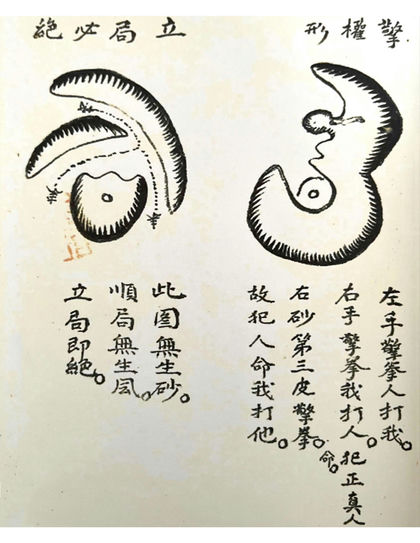 擎權形
左手擎拳人打我。
右手擎拳我打人。犯正真人命。
右砂第三皮擎拳。
故犯人命我打他。
立局必絕
此圖無生砂。
順局無生。
立局即絕。